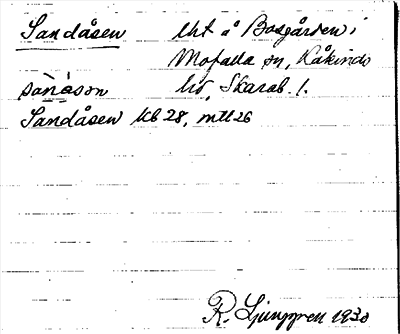 Sandåsen lht å Bosgården i
Mofalla sn, Kåkinds
sànåsǝn hd, Skarab. l.
Sandåsen kb 28, mtl 26
R. Ljunggren 1930